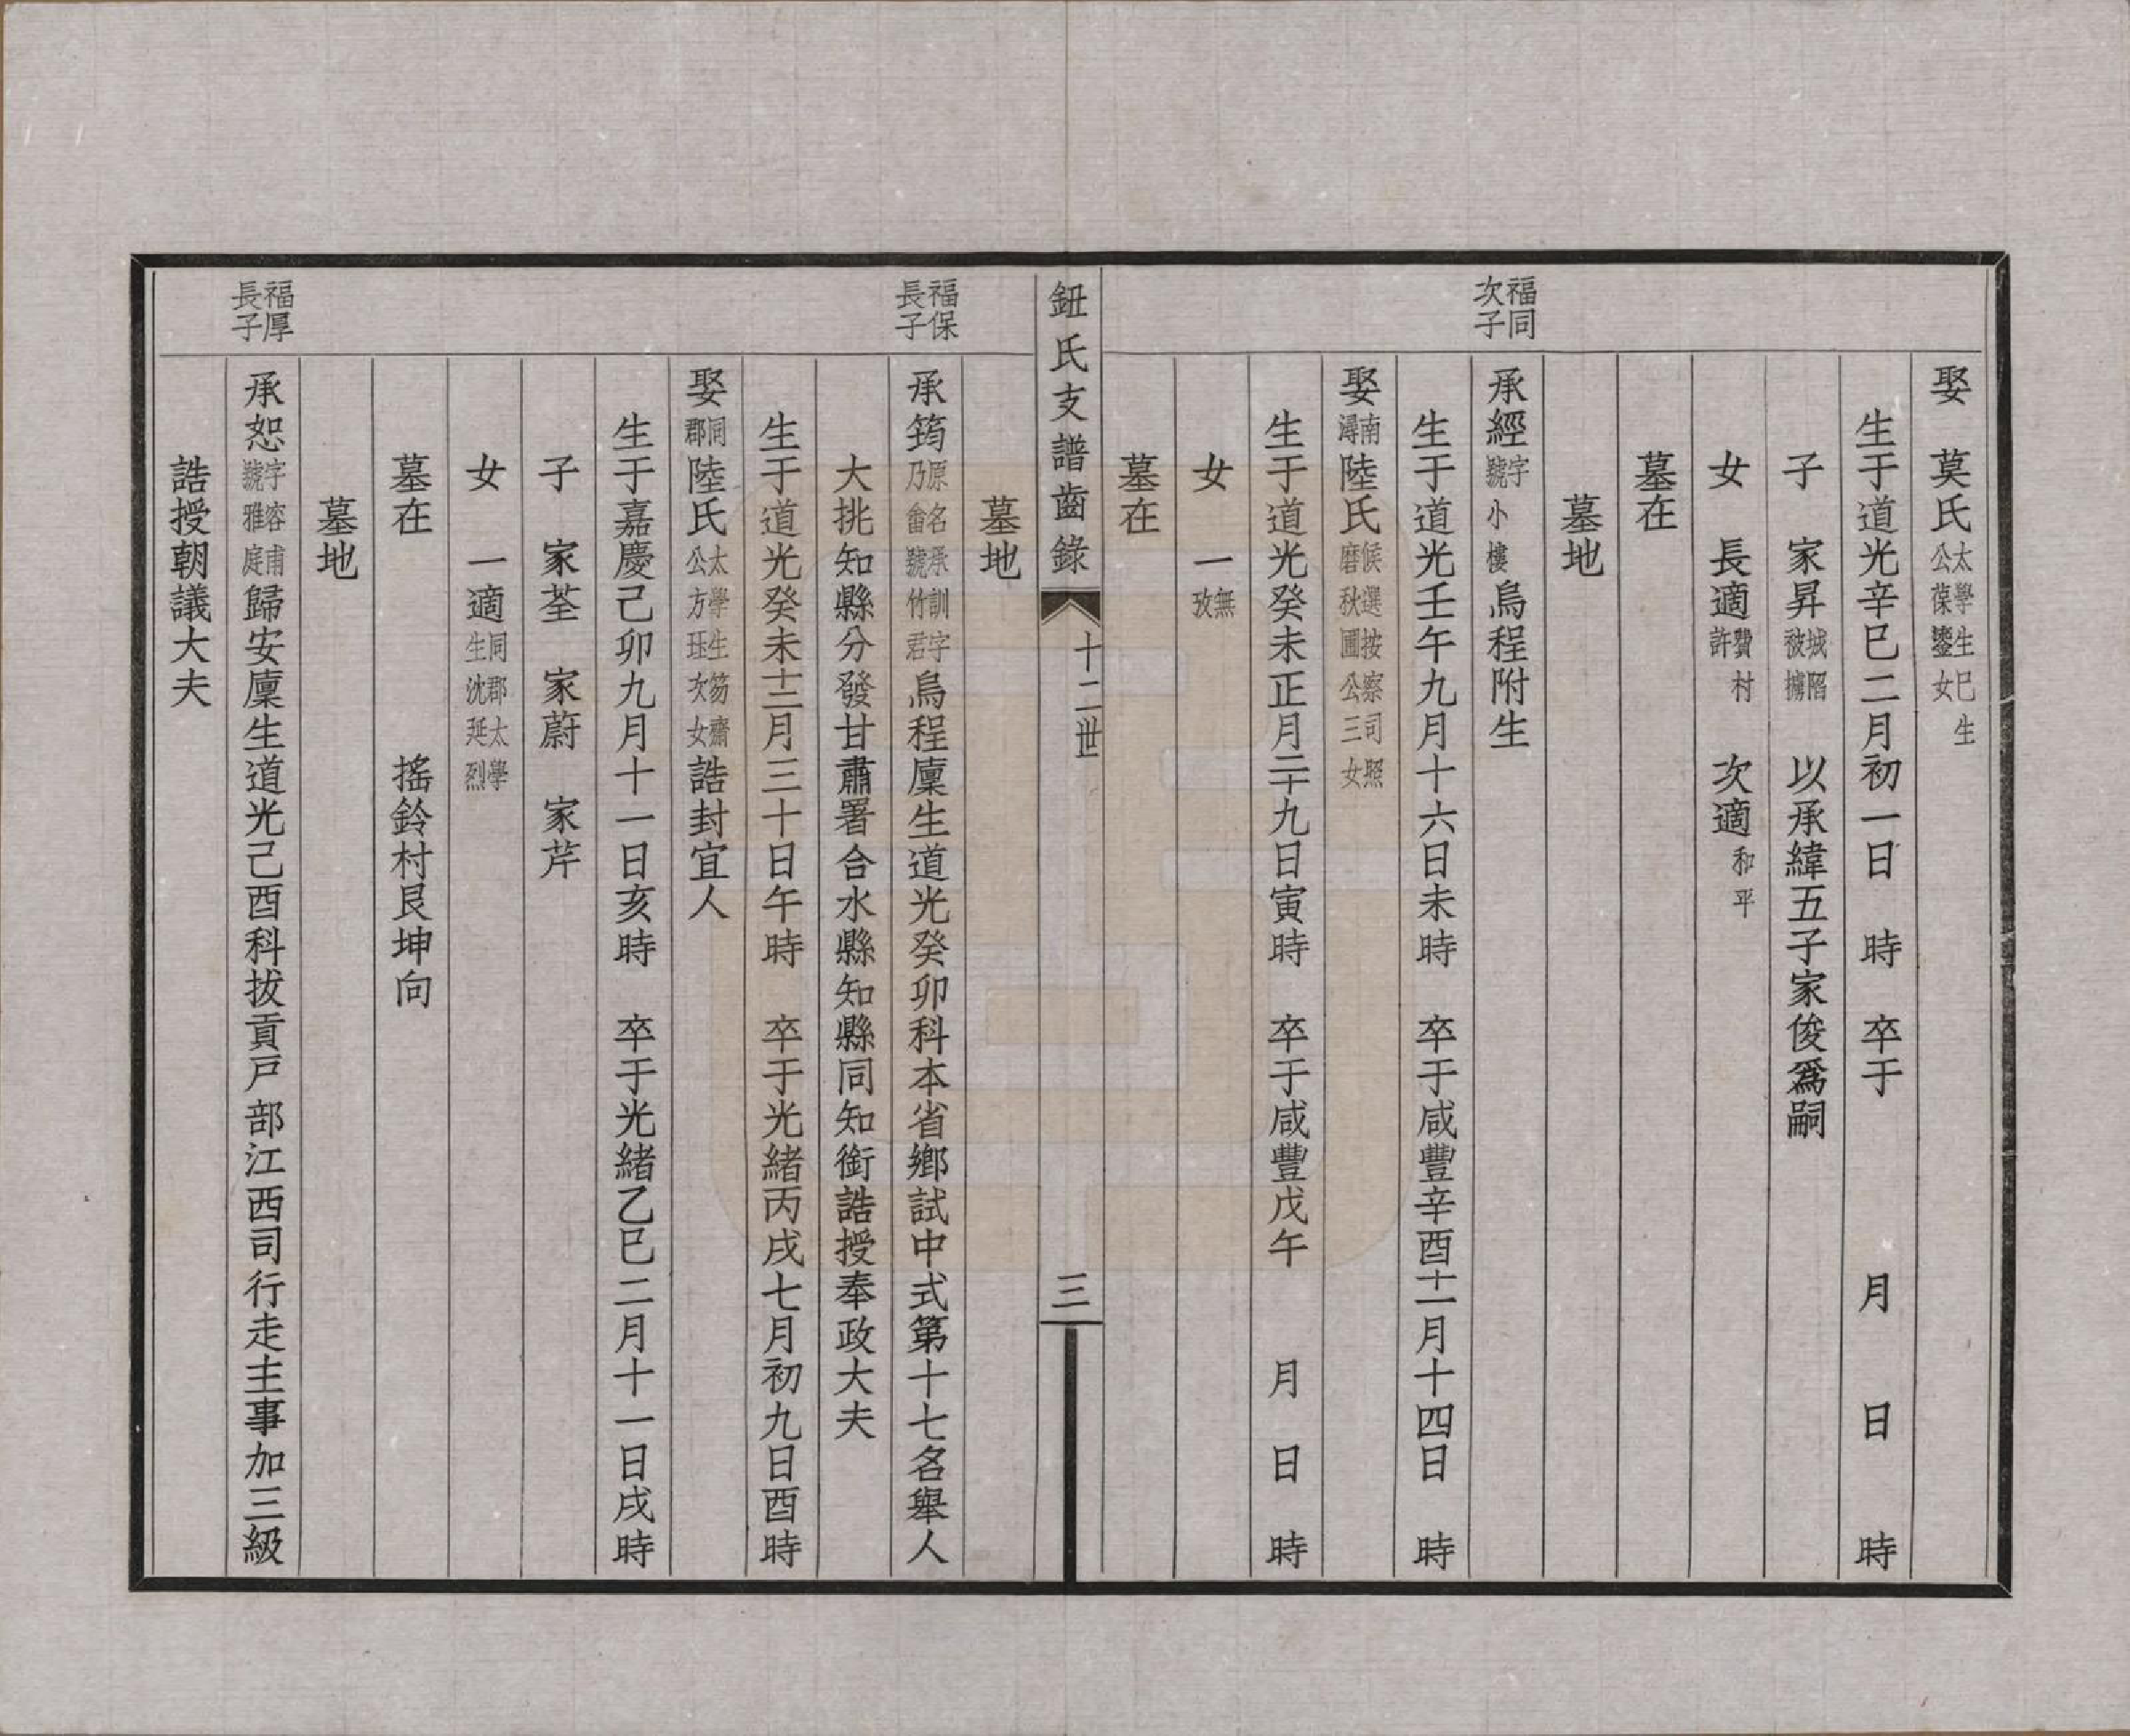 娶　莫氏太學生巳生公葆鑾女
生于道光辛巳二月初一日　時　卒于　月　日　時
子　家昇城陷被擄　以承緯五子家俊爲嗣
女　長適費村許　次適和平
墓在
墓地
福同次子
承經字號小樓烏程附生
生于道光壬午九月十六日未時　卒于咸豐辛酉十一月十四日　時
娶南潯陸氏候選按察司照磨秋圃公三女
生于道光癸未正月二十九日寅時　卒于咸豐戊午　月　日　時
女　一無攷
墓在
鈕氏支譜齒錄　十二世　三
墓地
福保長子
承筠原名承訓字乃畬號竹君烏程廩生道光癸卯科本省鄉試中式第十七名舉人
大挑知縣分發甘肅署合水縣知縣同知銜誥授奉政大夫
生于道光癸未十二月三十日午時　卒于光緒丙戌七月初九日酉時
娶同郡陸氏太學生笏齋公方珏次女誥封宜人
生于嘉慶己卯九月十一日亥時　卒于光緒乙巳二月十一日戌時
子　家荃　家蔚　家芹
女　一適同郡太學生沈延烈
墓在　搖鈴村艮坤向
墓地
福厚長子
承恕字容甫號雅庭歸安廩生道光己酉科拔貢戶部江西司行走主事加三級
誥授朝議大夫